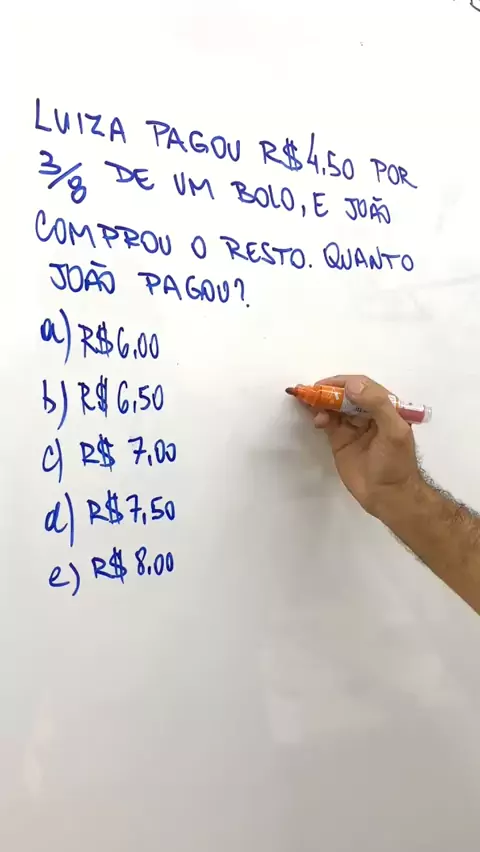 LUIZA PAGOU R$4,50 POR
3/8 DE UM BOLO, E JOÃO
COMPROU O RESTO. QUANTO
JOÃO PAGOU?
a) R$6,00
b) R$ 6,50
c) R$ 7,00
d) R$7,50
e) R$ 8,00